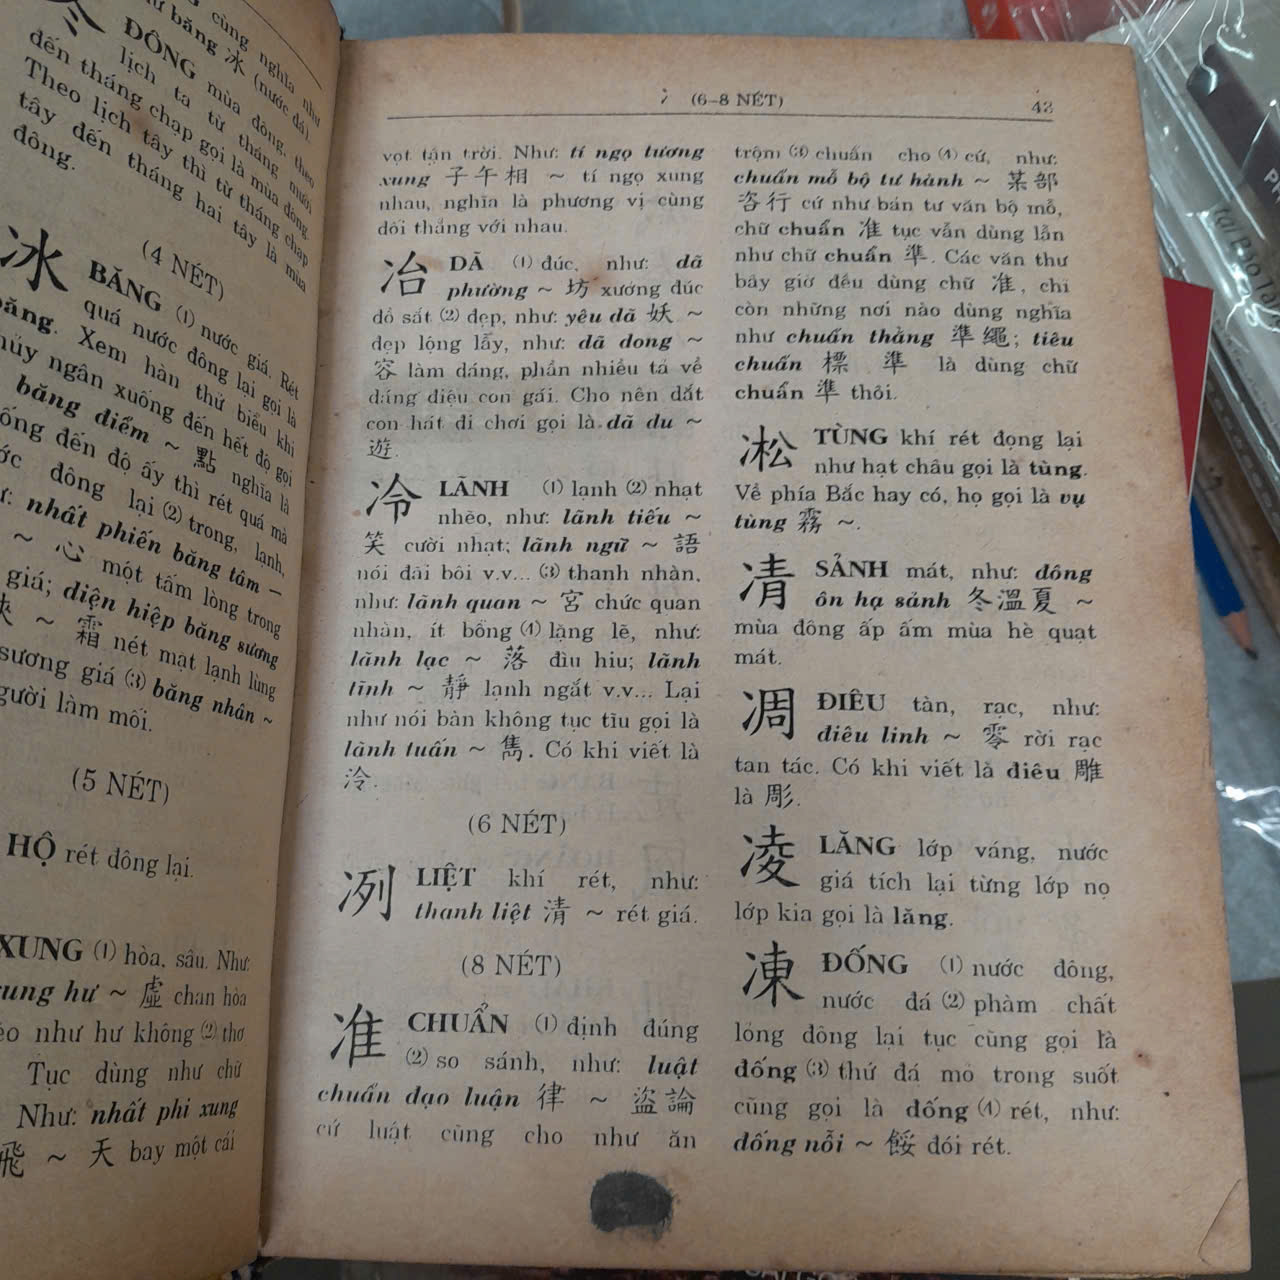 CÙNG nghĩa như
băng 冰 (nước đá).
冬 ĐÔNG mùa đông, theo
lịch ta từ tháng mười
đến tháng chạp gọi là mùa đông.
Theo lịch tây thì từ tháng chạp
tây đến tháng hai tây là mùa
đông.
(4 NÉT)
冰 BĂNG (1) nước giá. Rét
quá nước đông lại gọi là
băng. Xem hàn thử biểu khi
thủy ngân xuống đến hết độ gọi
băng điểm ~ 點 nghĩa là
đến độ ấy thì rét quá mà
đông lại (2) trong, lạnh,
nhất phiến băng tâm –
~ 心 một tấm lòng trong
giá; diện hiệp băng sương
~ 霜 nét mặt lạnh lùng
sương giá (3) băng nhân ~
người làm mối.
(5 NÉT)
HỘ rét đông lại.
XUNG (1) hòa, sâu. Như:
xung hư ~ 虛 chan hòa
như hư không (2) thơ
Tục dùng như chữ
Như: nhất phi xung
飛 ~ 天 bay một cái
冫 (6–8 NÉT) 43
vọt tận trời. Như: tí ngọ tương
xung 子午相 ~ tí ngọ xung
nhau, nghĩa là phương vị cùng
đối thẳng với nhau.
冶 DÃ (1) đúc, như: dã
phường ~ 坊 xưởng đúc
đồ sắt (2) đẹp, như: yêu dã 妖 ~
đẹp lộng lẫy, như: dã dong ~
容 làm dáng, phần nhiều tả về
dáng điệu con gái. Cho nên dắt
con hát đi chơi gọi là dã du ~
遊.
冷 LÃNH (1) lạnh (2) nhạt
nhẽo, như: lãnh tiếu ~
笑 cười nhạt; lãnh ngữ ~ 語
nói đãi bôi v.v... (3) thanh nhàn,
như: lãnh quan ~ 宮 chức quan
nhàn, ít bổng (4) lặng lẽ, như:
lãnh lạc ~ 落 đìu hiu; lãnh
tĩnh ~ 靜 lạnh ngắt v.v... Lại
như nói bàn không tục tĩu gọi là
lãnh tuấn ~ 雋. Có khi viết là
泠.
(6 NÉT)
冽 LIỆT khí rét, như:
thanh liệt 清 ~ rét giá.
(8 NÉT)
准 CHUẨN (1) định đúng
(2) so sánh, như: luật
chuẩn đạo luận 律 ~ 盜論
cứ luật cũng cho như ăn
trộm (3) chuẩn cho (4) cứ, như:
chuẩn mỗ bộ tư hành ~ 某部
咨行 cứ như bản tư văn bộ mỗ,
chữ chuẩn 准 tục vẫn dùng lẫn
như chữ chuẩn 準. Các văn thư
bây giờ đều dùng chữ 准, chỉ
còn những nơi nào dùng nghĩa
như chuẩn thằng 準繩; tiêu
chuẩn 標 準 là dùng chữ
chuẩn 準 thôi.
凇 TÙNG khí rét đọng lại
như hạt châu gọi là tùng.
Về phía Bắc hay có, họ gọi là vụ
tùng 霧 ~.
凊 SẢNH mát, như: đông
ôn hạ sảnh 冬溫夏 ~
mùa đông ấp ấm mùa hè quạt
mát.
凋 ĐIÊU tàn, rạc, như:
điêu linh ~ 零 rời rạc
tan tác. Có khi viết là điêu 雕
là 彫.
凌 LĂNG lớp váng, nước
giá tích lại từng lớp nọ
lớp kia gọi là lăng.
凍 ĐỐNG (1) nước đông,
nước đá (2) phàm chất
lỏng đông lại tục cũng gọi là
đống (3) thứ đá mỏ trong suốt
cũng gọi là đống (4) rét, như:
đống nỗi ~ 餒 đói rét.